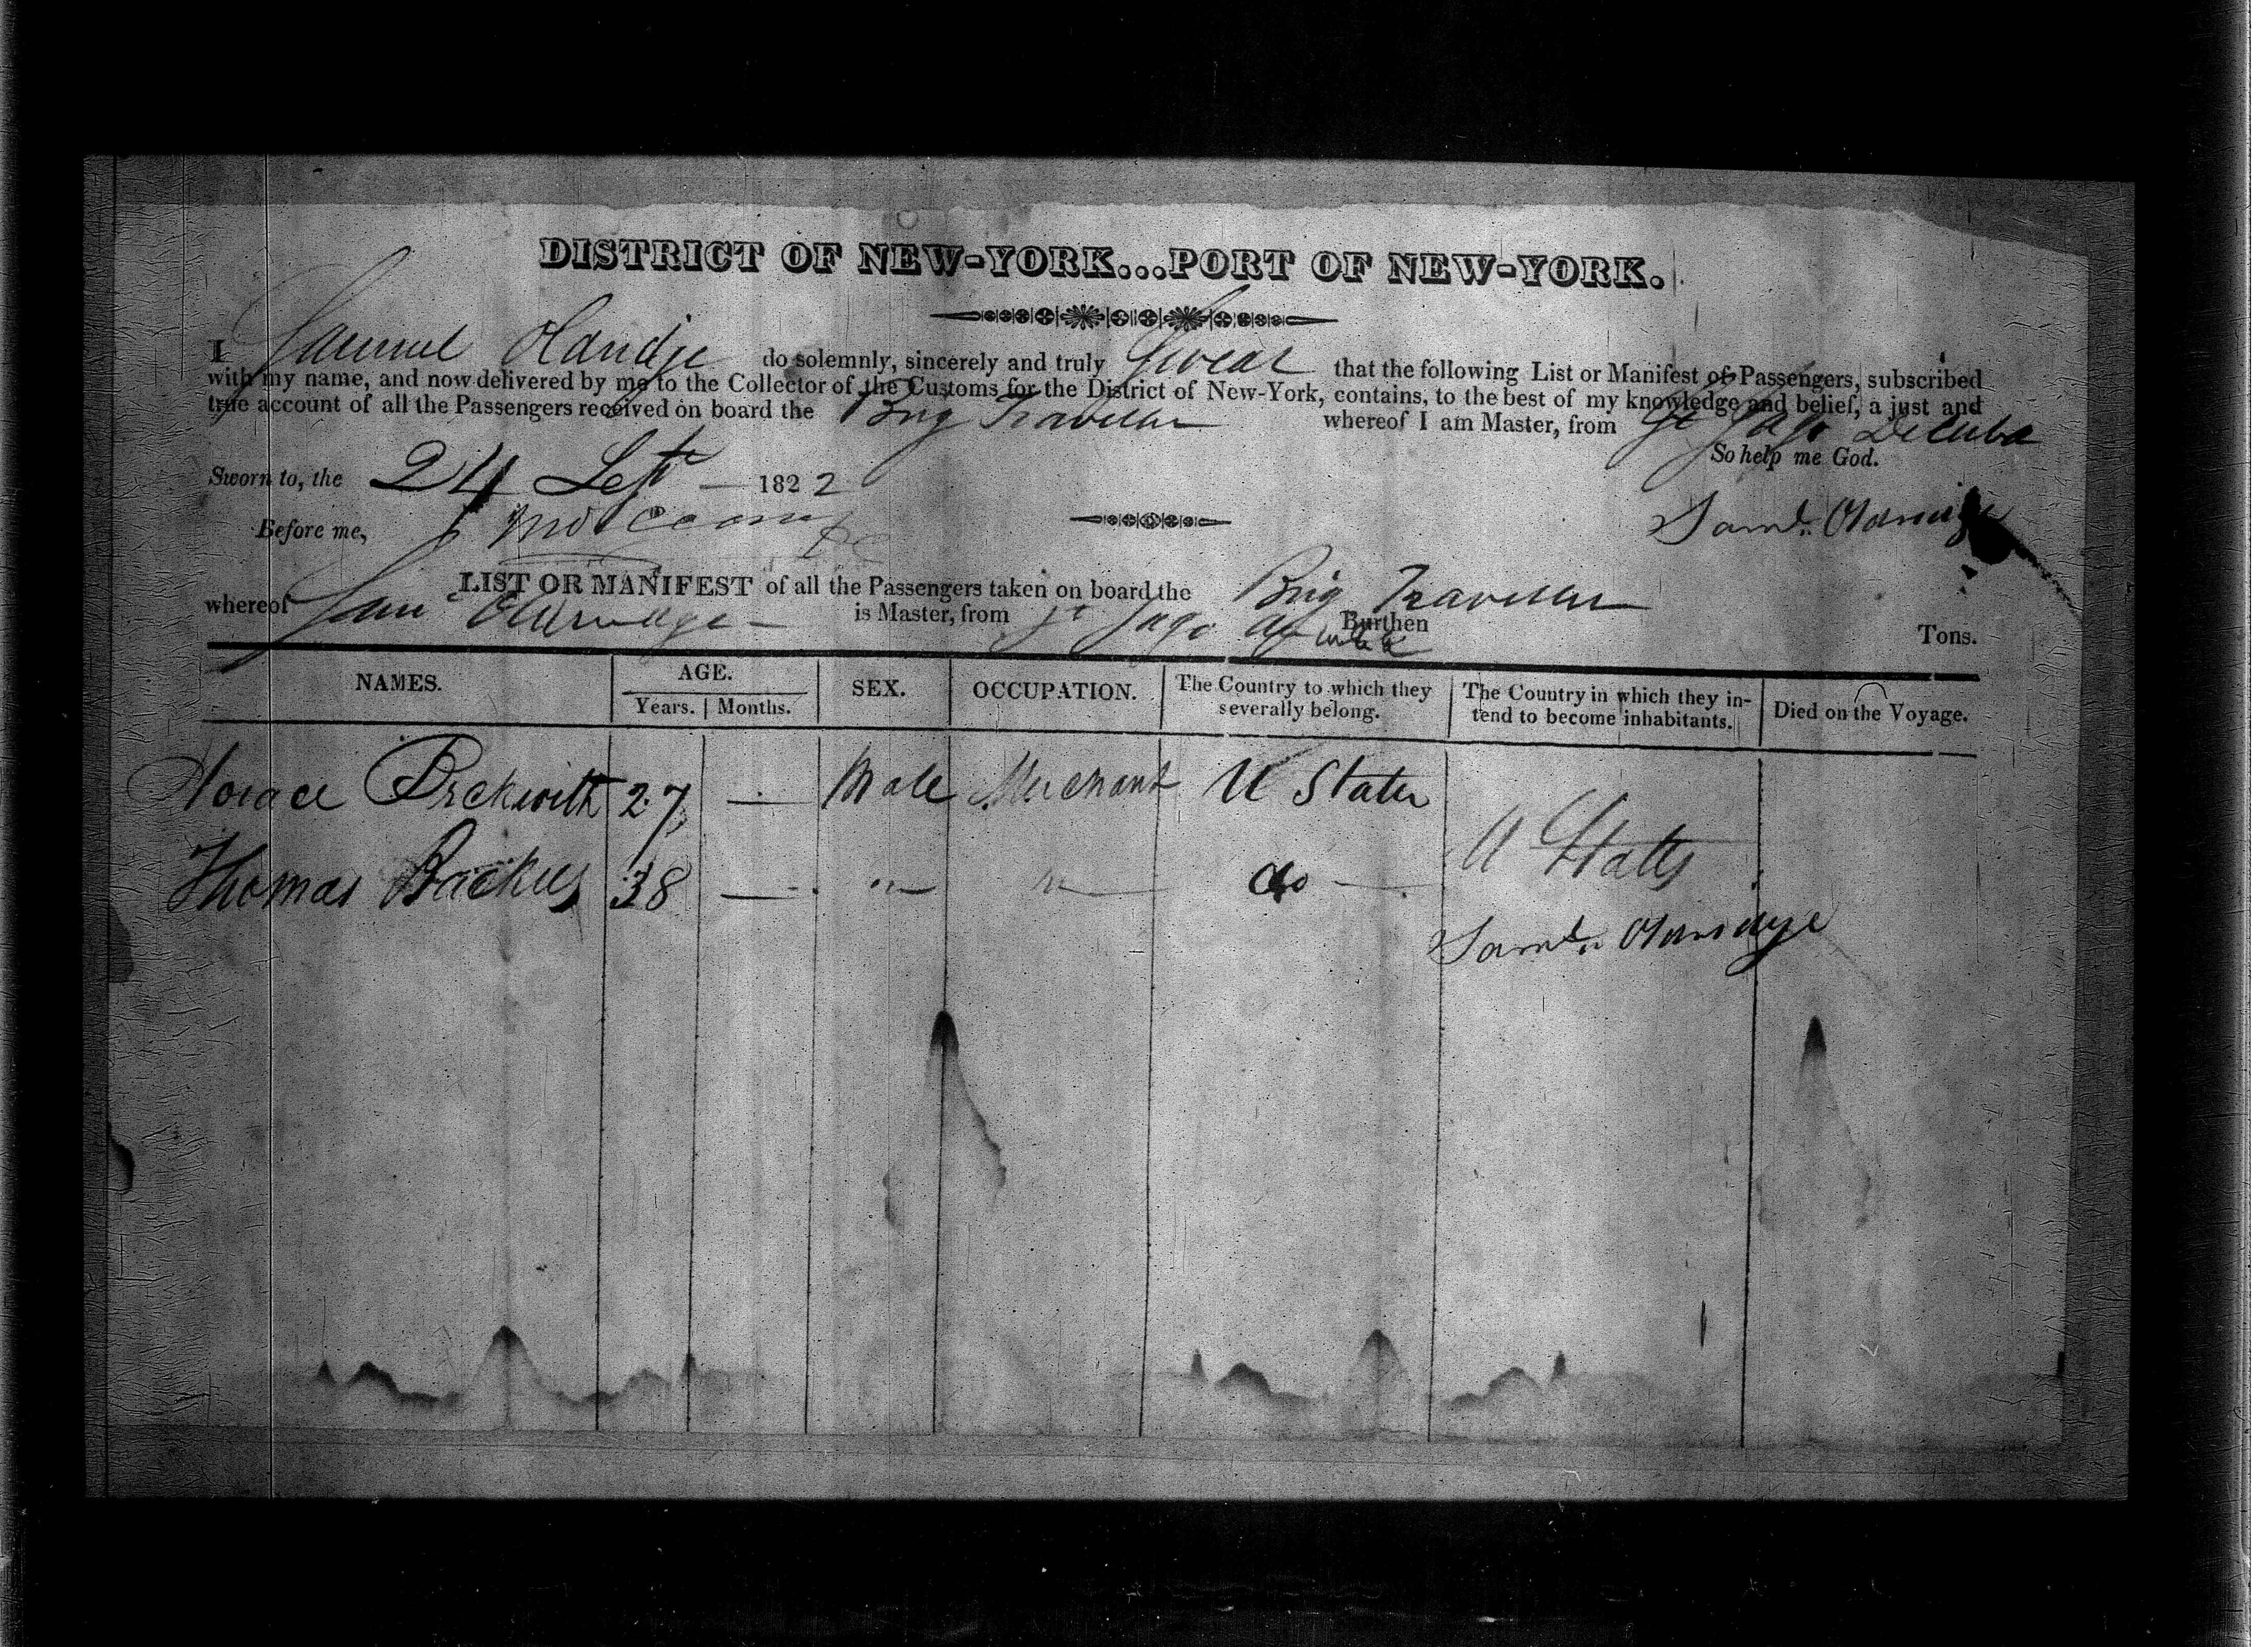 DISTRICT OF NEW-YORK...PORT OF NEW-YORK.
I Samuel do solemnly, sincerely and truly Swear that the following List or Manifest of Passengers, subscribed
with my name, and now delivered by me to the Collector of the Customs for the District of New-York, contains, to the best of my knowledge and belief, a just and
true account of all the Passengers received on board the Brig Traveller whereof I am Master, from St Jago De Cuba
So help me God.
Sworn to, the 24 Sept 1822
Before me,
Saml.
LIST OR MANIFEST of all the Passengers taken on board the Brig Traveller
whereof Sam is Master, from St Jago de Cuba Burthen Tons.
NAMES. AGE. SEX. OCCUPATION. The Country to which they severally belong. The Country in which they in- tend to become inhabitants. Died on the Voyage.
Years. Months.
Horace Beckwith 27 — Male Merchant U States
U States
Thomas Backus 38 — " — " — do —
Saml.